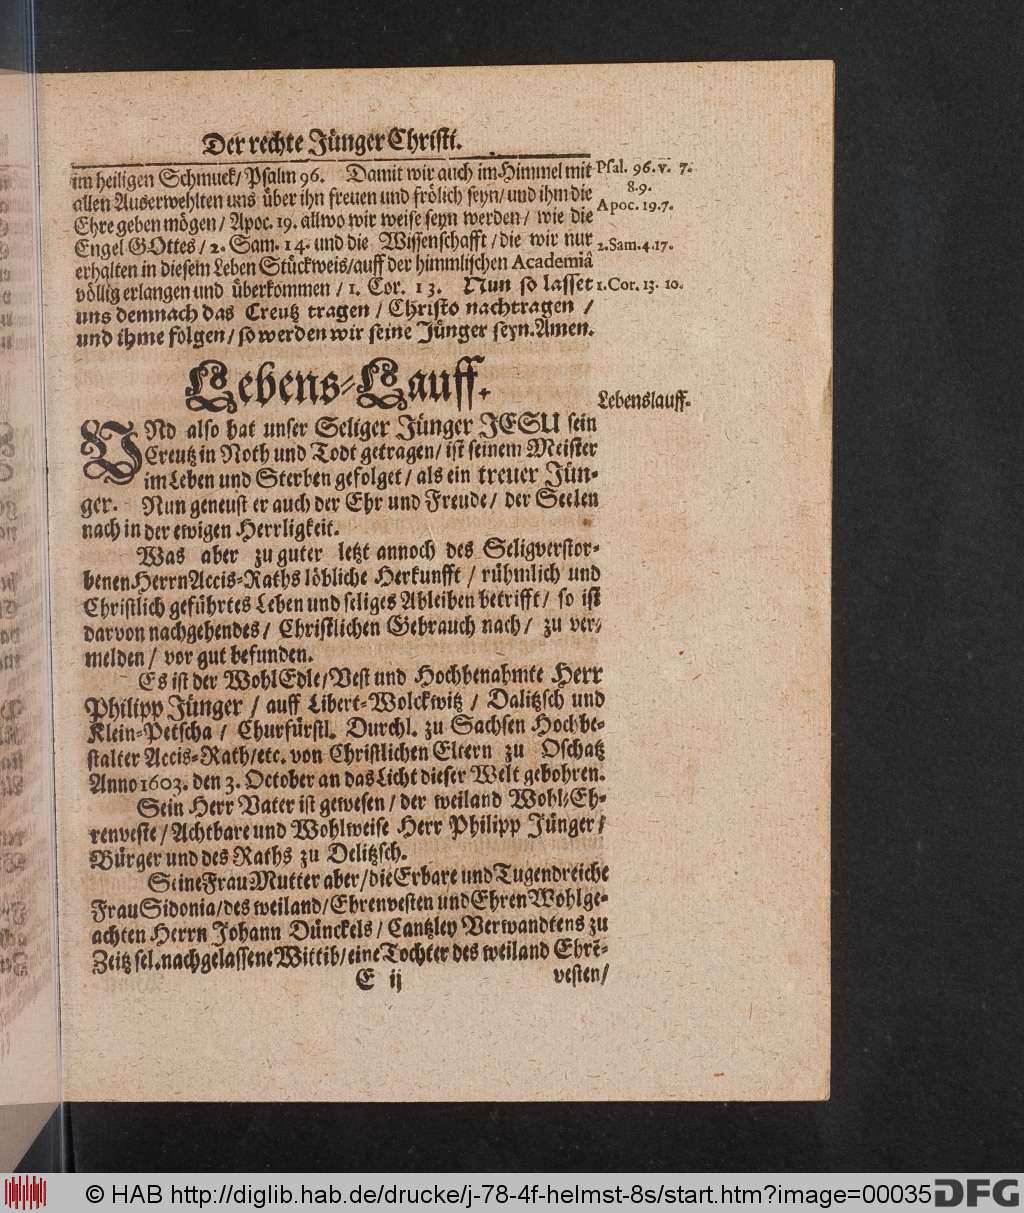 Der rechte Jünger Christi.
im heiligen Schmuck/ Psalm 96. Damit wir auch im Himmel mit
allen Auserwehlten uns über ihn freuen und frölich seyn/ und ihm die
Ehre geben mögen/ Apoc. 19. allwo wir weise seyn werden/ wie die
Engel GOttes/ 2. Sam. 14. und die Wissenschafft/ die wir nur
erhalten in diesem Leben Stückweis/ auff der himmlischen Academiâ
völlig erlangen und überkommen/ 1. Cor. 13. Nun so lasset
uns demnach das Creutz tragen/ Christo nachtragen/
und ihme folgen/ so werden wir seine Jünger seyn. Amen.
Psal. 96. v. 7.
8.9.
Apoc. 19.7.
2. Sam. 4.17.
1. Cor. 13. 10.
Lebens-Lauff.
Lebenslauff.
UNd also hat unser Seliger Jünger JESU sein
Creutz in Noth und Todt getragen/ ist seinem Meister
im Leben und Sterben gefolget/ als ein treuer Jün-
ger. Nun geneust er auch der Ehr und Freude/ der Seelen
nach in der ewigen Herrligkeit.
Was aber zu guter letzt annoch des Seligverstor-
benen Herrn Accis-Raths löbliche Herkunfft/ rühmlich und
Christlich geführtes Leben und seliges Ableiben betrifft/ so ist
darvon nachgehendes/ Christlichen Gebrauch nach/ zu ver-
melden/ vor gut befunden.
Es ist der WohlEdle/ Vest und Hochbenahmte Herr
Philipp Jünger/ auff Libert-Wolckwitz/ Dalitzsch und
Klein-Petscha/ Churfürstl. Durchl. zu Sachsen Hochbe-
stalter Accis-Rath/ etc. von Christlichen Eltern zu Oschatz
Anno 1603. den 3. October an das Licht dieser Welt gebohren.
Sein Herr Vater ist gewesen/ der weiland Wohl-Eh-
renveste/ Achtbare und Wohlweise Herr Philipp Jünger/
Bürger und des Raths zu Delitzsch.
Seine Frau Mutter aber/ die Erbare und Tugendreiche
Frau Sidonia/ des weiland/ Ehrenvesten und Ehren Wohlge-
achten Herrn Johann Dünckels/ Cantzley Verwandtens zu
Zeitz sel. nachgelassene Wittib/ eine Tochter des weiland Ehrē-
E ij
vesten/
© HAB http://diglib.hab.de/drucke/j-78-4f-helmst-8s/start.htm?image=00035
DFG